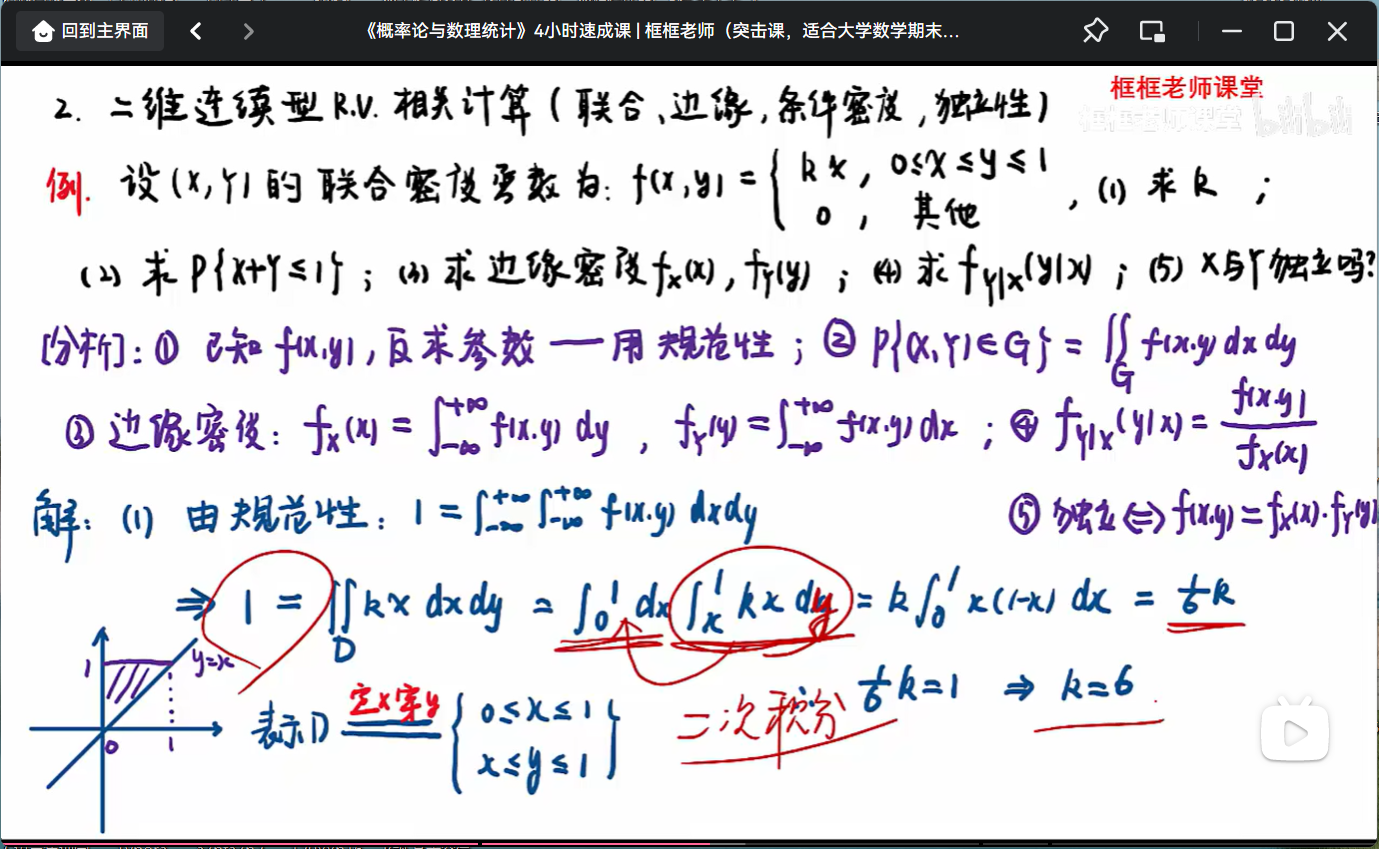 回到主界面
《概率论与数理统计》4小时速成课 | 框框老师（突击课，适合大学数学期末...
框框老师课堂
框框老师课堂 bilibili
2. 二维连续型 R.V. 相关计算 ( 联合、边缘, 条件密度, 独立性 )
例. 设 (X,Y) 的联合密度函数为: f(x,y) = { kx, 0≤x≤y≤1
0, 其他 , (1) 求 k ;
(2) 求 P{X+Y≤1} ; (3) 求边缘密度 fX(x), fY(y) ; (4) 求 fY|X(y|x) ; (5) X与Y独立吗?
[分析]: ① 已知 f(x,y), 反求参数 — 用规范性 ; ② P{(X,Y)∈G} = ∬G f(x,y) dxdy
③ 边缘密度: fX(x) = ∫-∞+∞ f(x,y) dy , fY(y) = ∫-∞+∞ f(x,y) dx ; ④ fY|X(y|x) = f(x,y)/fX(x)
解: (1) 由规范性: 1 = ∫-∞+∞ ∫-∞+∞ f(x,y) dxdy
⑤ 独立 ⇔ f(x,y) = fX(x)·fY(y)
⇒ 1 = ∬D kx dxdy = ∫01 dx ∫x1 kx dy = k∫01 x(1-x) dx = 1/6 k
1 y=x 0 1
表示D 定x穿y { 0≤x≤1
x≤y≤1 }
二次积分
1/6 k = 1 ⇒ k = 6